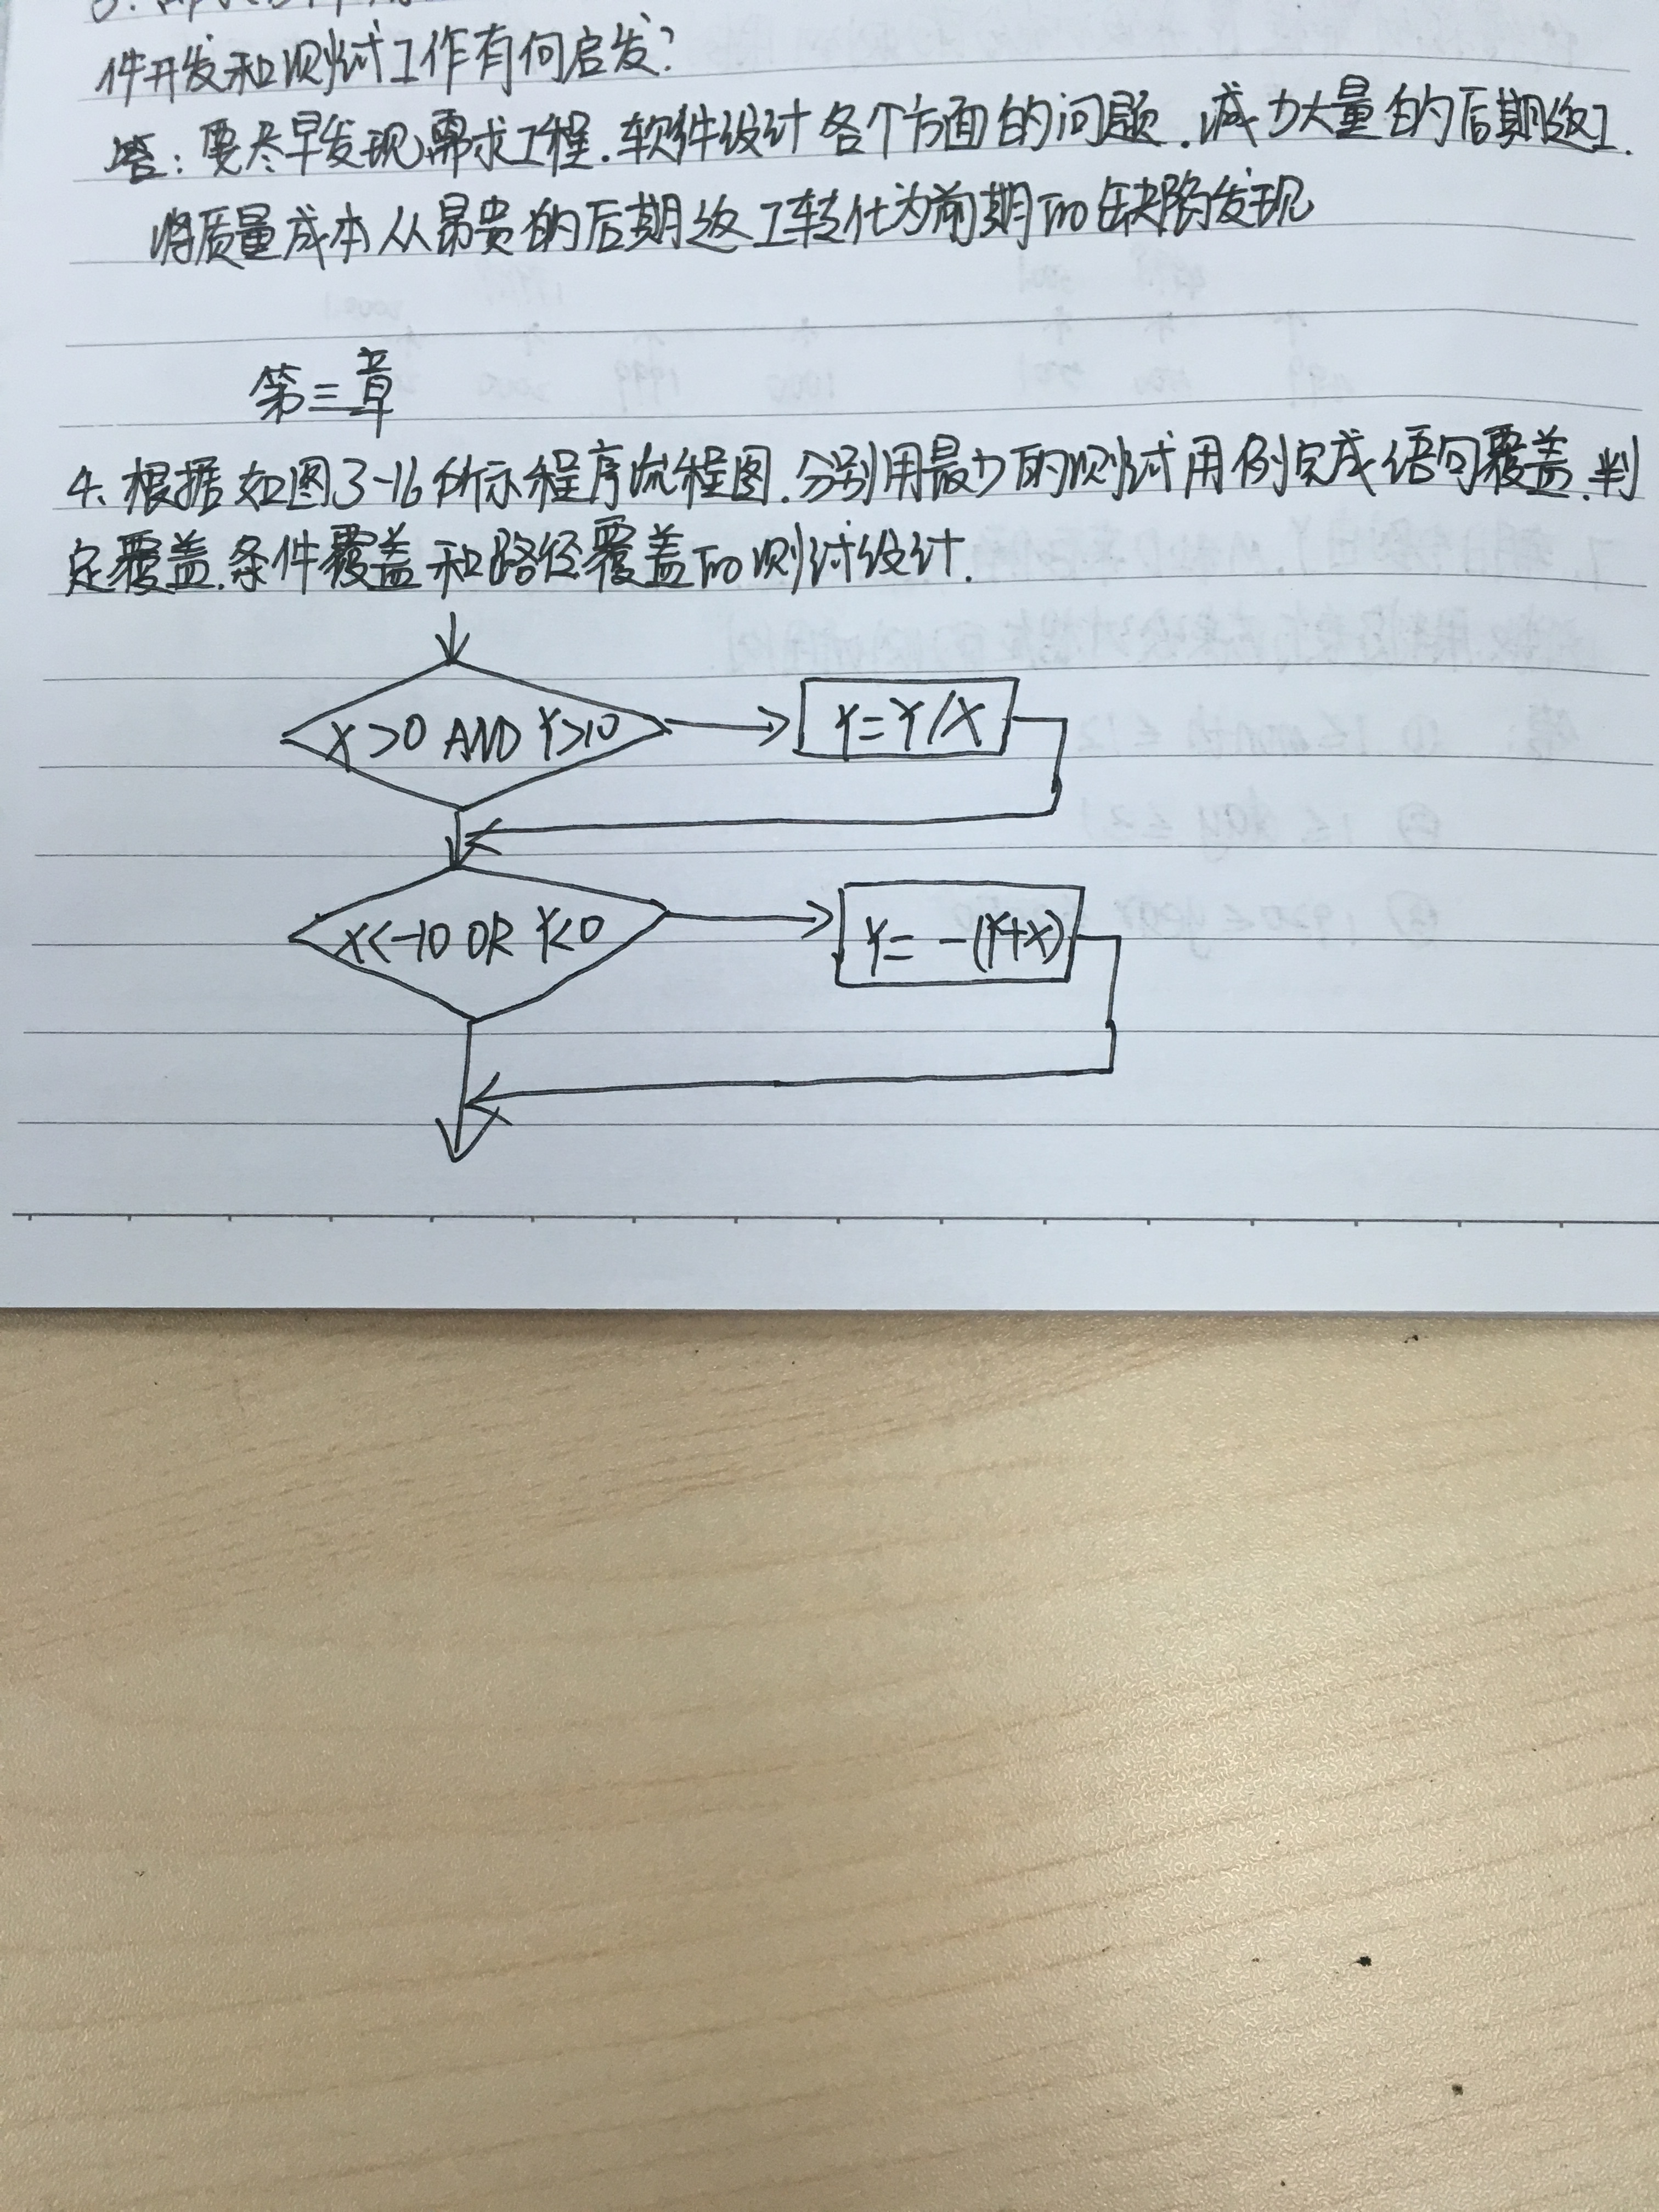 件开发和测试工作有何启发?
答:要尽早发现需求工程.软件设计各个方面的问题.减少大量的后期返工.
将质量成本从昂贵的后期返工转化为前期的缺陷发现
第三章
4.根据如图3-16所示程序流程图.分别用最少的测试用例完成语句覆盖.判
定覆盖.条件覆盖和路径覆盖的测试设计.
X>0 AND Y>10
Y=Y/X
X<-10 OR Y<0
Y= -(Y+X)